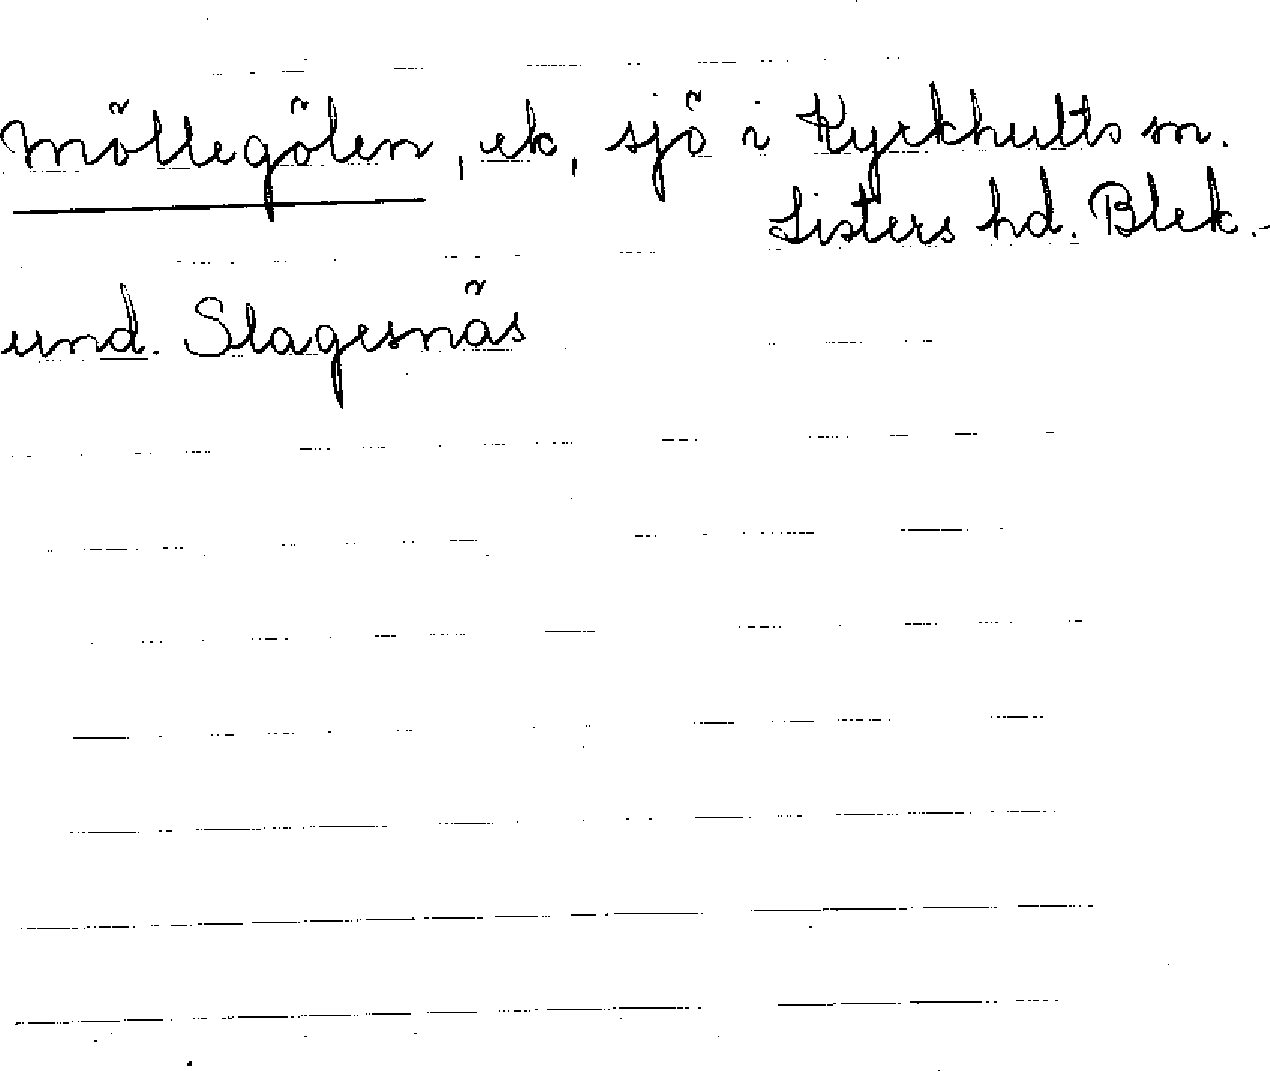 Möllegölen, ek, sjö i Kyrkhults sn.
Listers hd. Blek.-
und. Slagesnäs